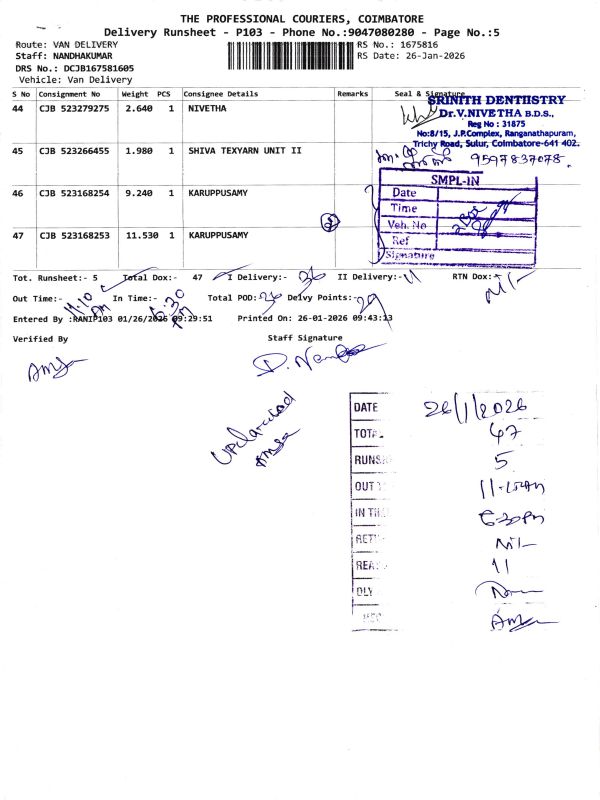 THE PROFESSIONAL COURIERS, COIMBATORE
Delivery Runsheet - P103 - Phone No.:9047080280 - Page No.:5
Route: VAN DELIVERY
RS No.: 1675816
Staff: NANDHAKUMAR
RS Date: 26-Jan-2026
DRS No.: DCJB167581605
Vehicle: Van Delivery
S No Consignment No Weight PCS Consignee Details Remarks Seal & Signature
44 CJB 523279275 2.640 1 NIVETHA
SRINITH DENTIISTRY
Dr.V.NIVETHA B.D.S.,
Reg No : 31875
No:8/15, J.P.Complex, Ranganathapuram,
Trichy Road, Sulur, Coimbatore-641 402.
45 CJB 523266455 1.980 1 SHIVA TEXYARN UNIT II
9597837078
46 CJB 523168254 9.240 1 KARUPPUSAMY
SMPL-IN
Date
Time
Veh. No
Ref
Signature
2
47 CJB 523168253 11.530 1 KARUPPUSAMY
Tot. Runsheet:- 5 Total Dox:- 47 I Delivery:- 36 II Delivery:- 11 RTN Dox:- Nil
Out Time:- 11.10 Am In Time:- 6:30 Pm Total POD: 36 Delvy Points:- 29
Entered By :RANIP103 01/26/2026 09:29:51 Printed On: 26-01-2026 09:43:13
Verified By Staff Signature
DATE 26/1/2026
TOTAL 47
RUNS 5
OUT
IN TI 6-30Pm
RET Nil
REA 11
DLY